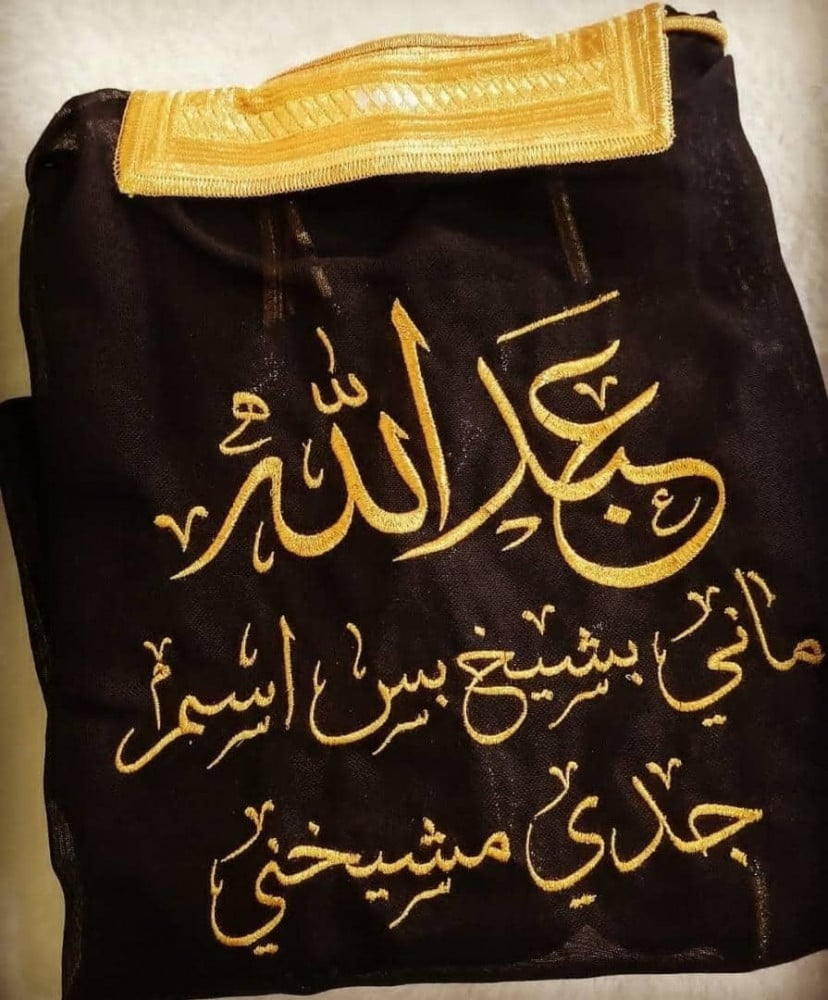 عبدالله
ماني بشيخ بس اسم
جدي مشيخني